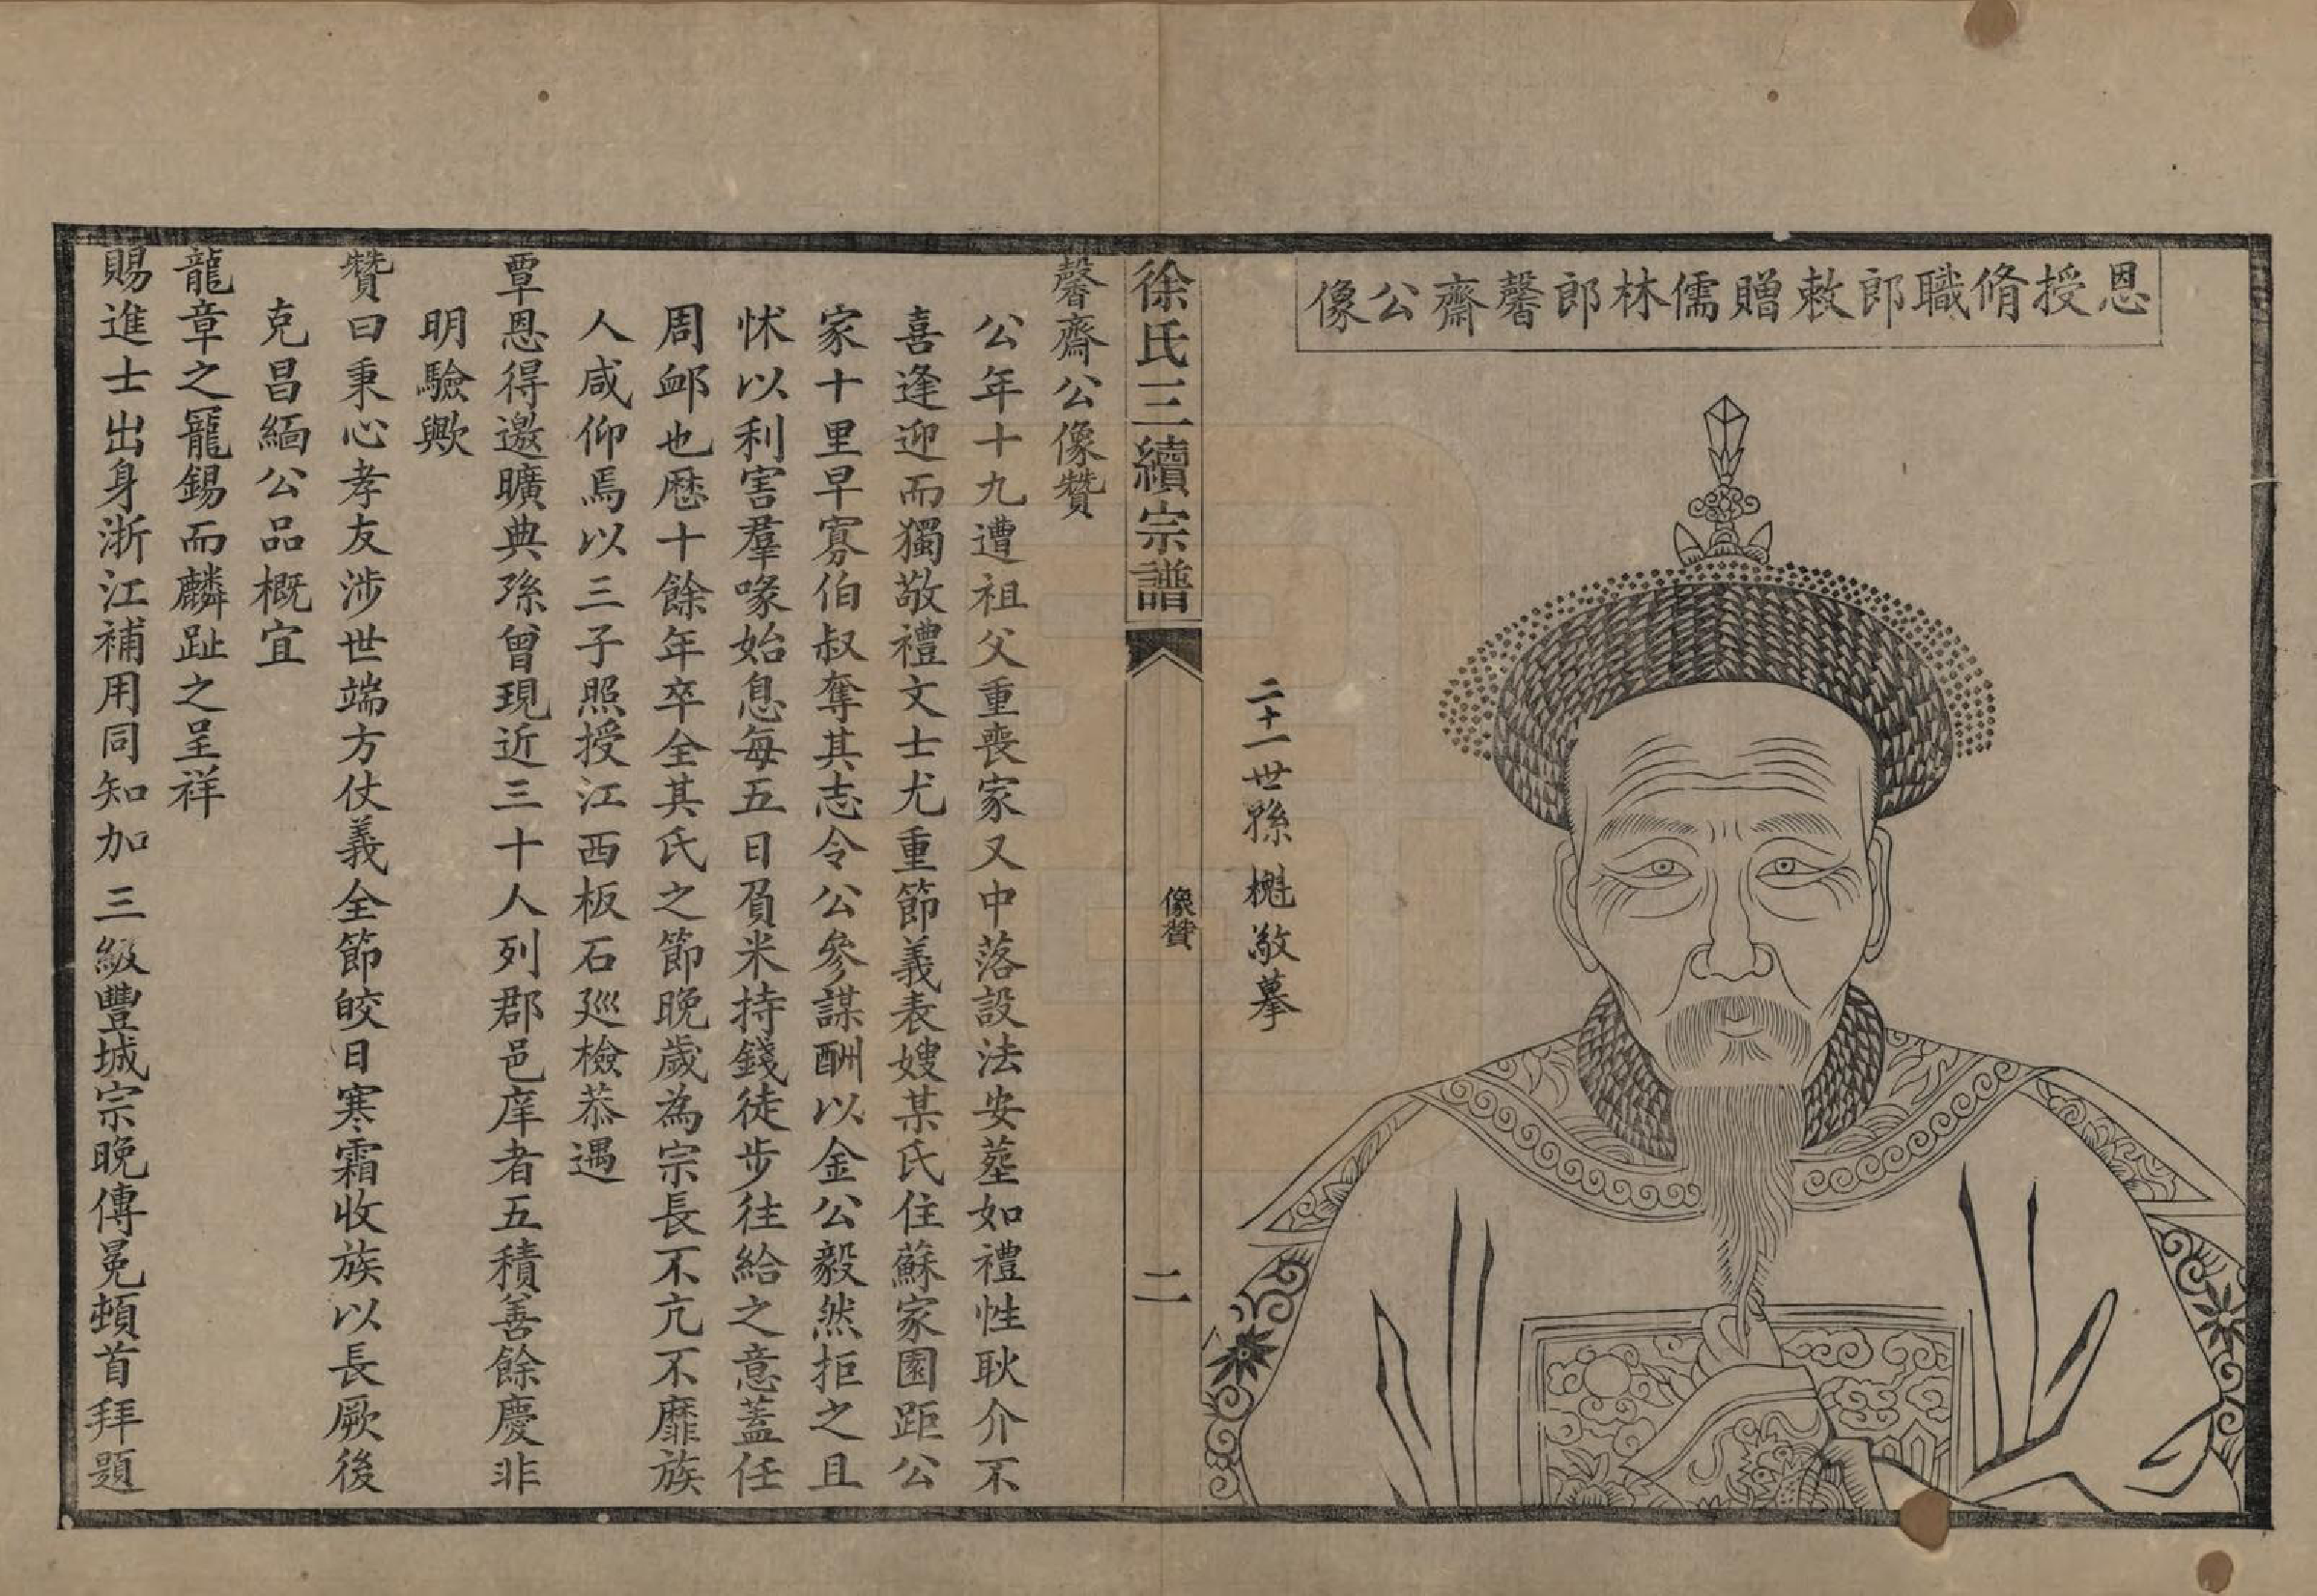 恩授脩職郎敕贈儒林郎馨齋公像
二十一世孫槐敬摹
徐氏三續宗譜
像贊
二
馨齋公像贊
公年十九遭祖父重喪家又中落設法安塟如禮性耿介不
喜逢迎而獨敬禮文士尤重節義表嫂某氏住蘇家園距公
家十里早寡伯叔奪其志令公參謀酬以金公毅然拒之且
怵以利害羣喙始息每五日負米持錢徒步往給之意蓋任
周卹也歷十餘年卒全其氏之節晚歲為宗長不亢不靡族
人咸仰焉以三子照授江西板石廵檢恭遇
覃恩得邀曠典孫曾現近三十人列郡邑庠者五積善餘慶非
明驗歟
贊曰秉心孝友涉世端方仗義全節皎日寒霜收族以長厥後
克昌緬公品概宜
龍章之寵錫而麟趾之呈祥
賜進士出身浙江補用同知加三級豐城宗晚傳冕頓首拜題